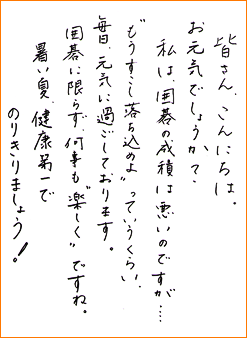 皆さん、こんにちは。
お元気でしょうか?
私は、囲碁の成積は悪いのですが……
"もうすこし落ち込めよ"っていうくらい、
毎日、元気に過ごしております。
囲碁に限らず、何事も"楽しく"ですね。
暑い夏、健康第一で
のりきりましょう!